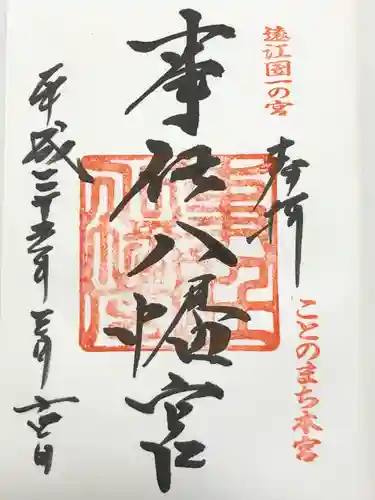 遠江国一の宮
奉拝
ことのまち本宮
事任八幡宮
平成二十五年三月吉日